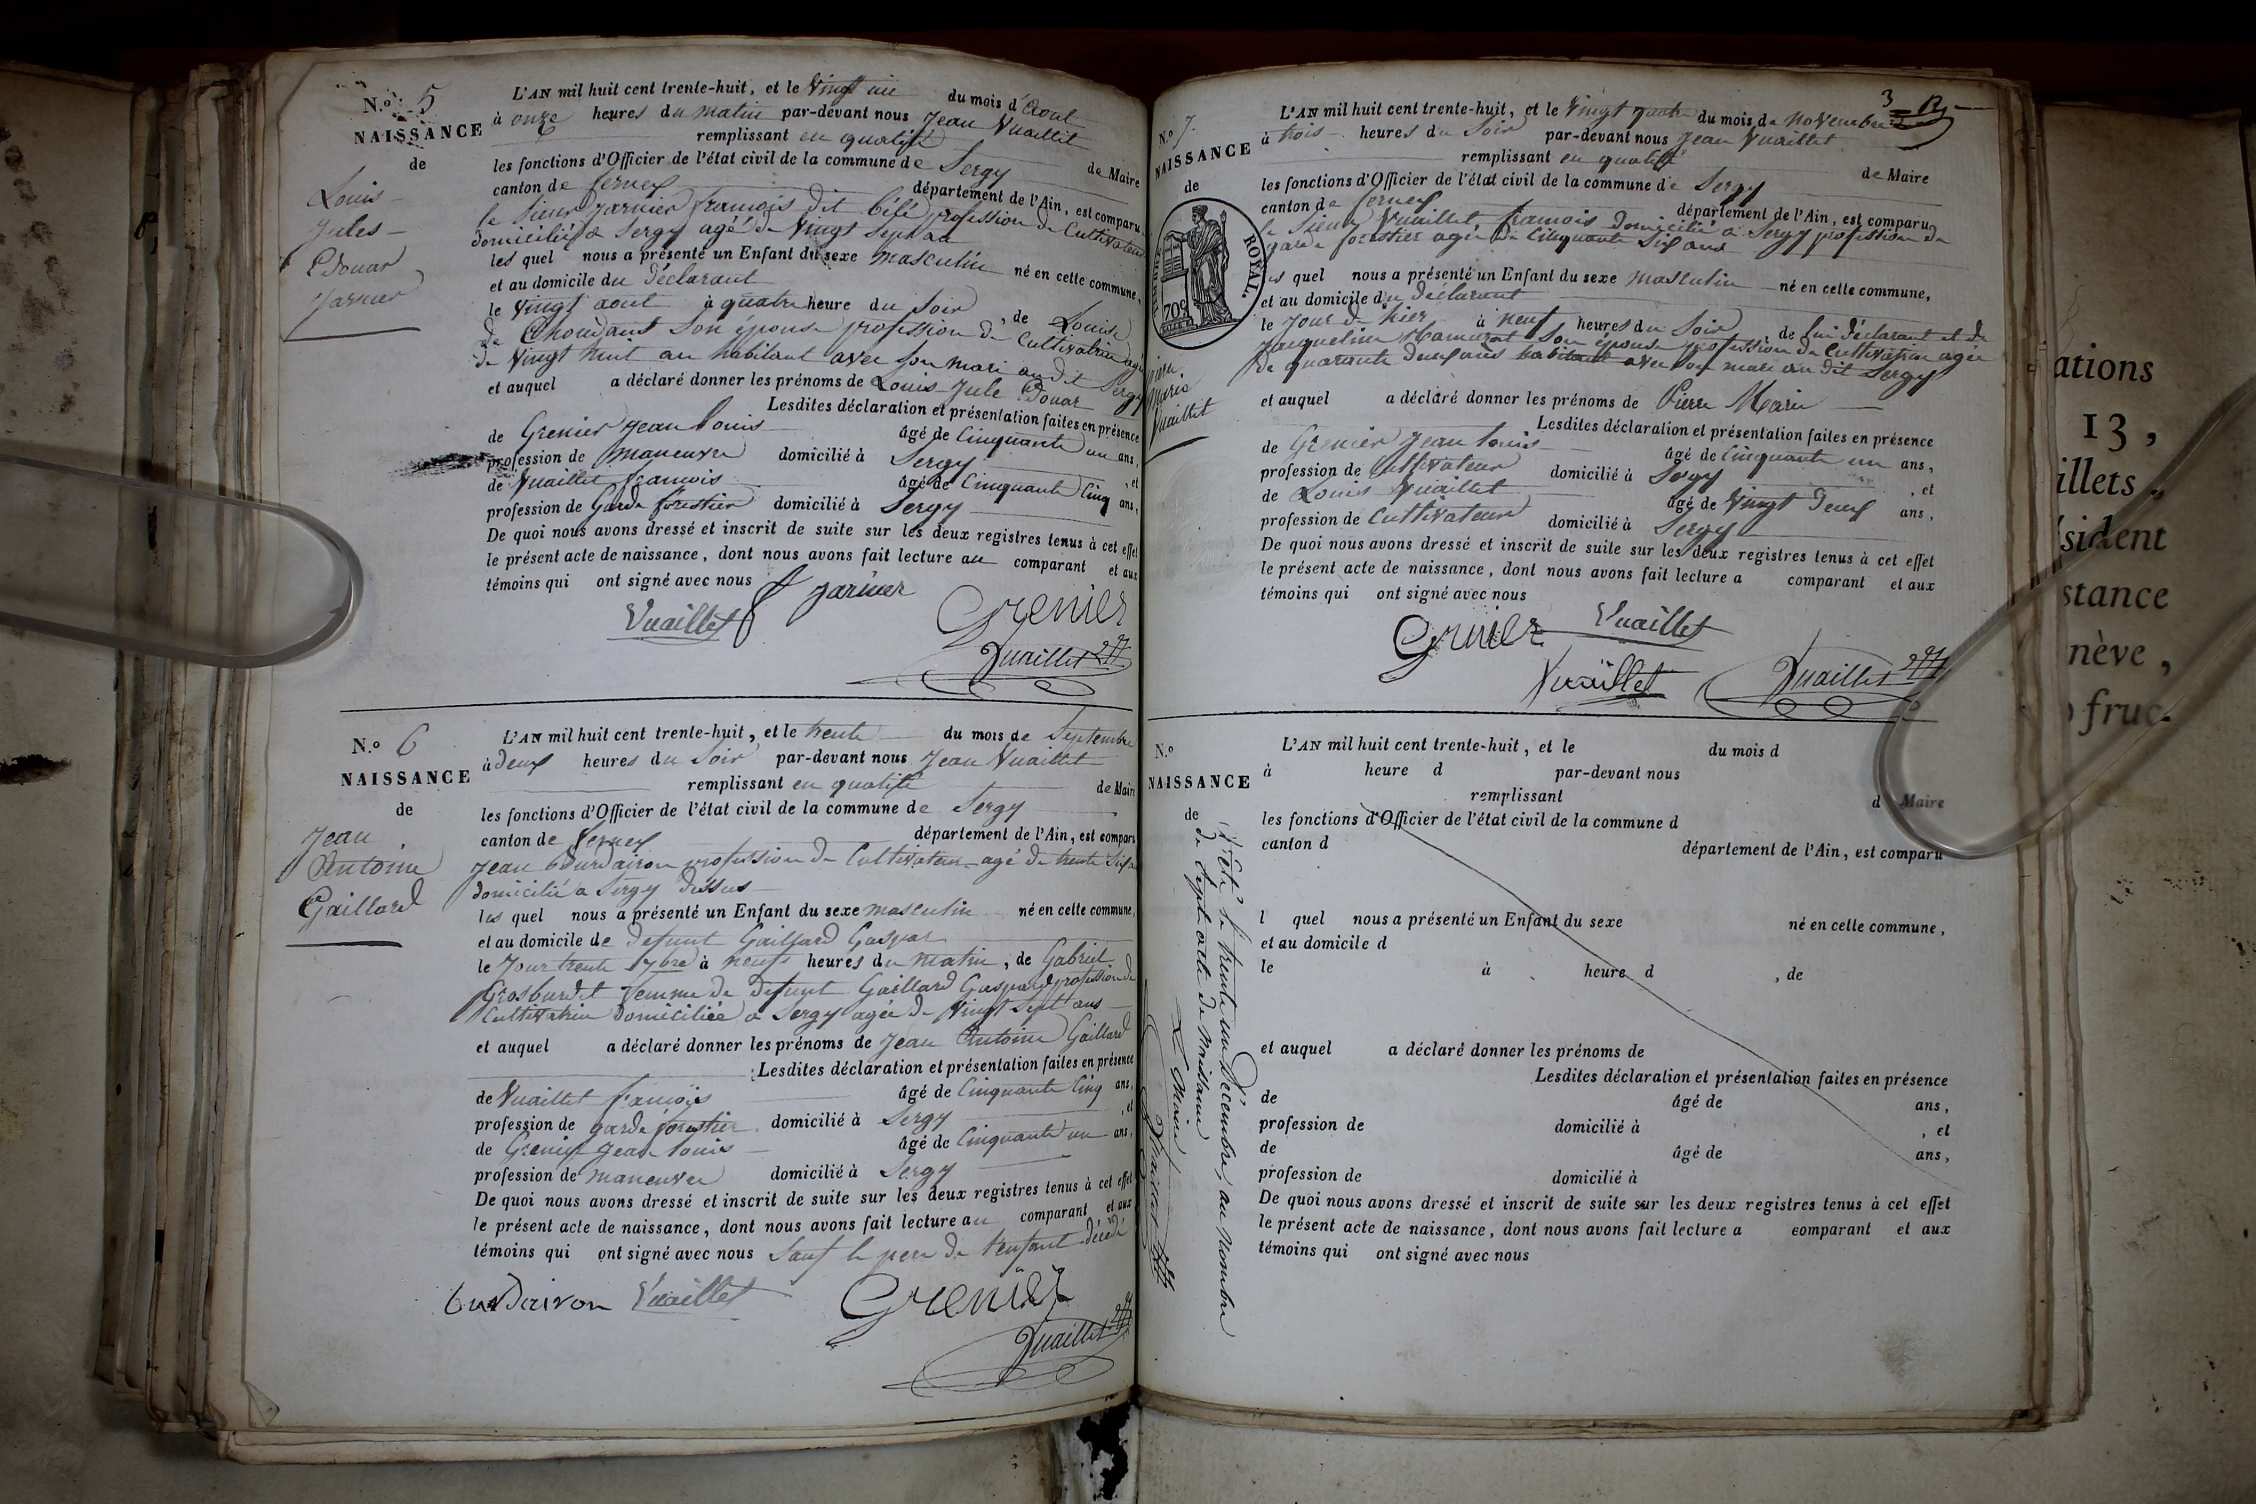 N.º 5
NAISSANCE
de
Louis
Jules
Edouar
Jarnier
L'AN mil huit cent trente-huit, et le Vingt un du mois d'Aout
à onze heures du matin par-devant nous Jean Vuaillet
remplissant en qualité de Maire
les fonctions d'Officier de l'état civil de la commune de Sergy
canton de ferney département de l'Ain, est comparu
le Sieur Jarnier francois dit profession de Cultivateur
domicilié a Sergy agé de Vingt Sept an
les quel nous a présenté un Enfant du sexe masculin né en cette commune,
et au domicile du déclarant
le Vingt aout à quatre heure du Soir, de Louise
de Choudans Son épouse profession de Cultivatrice agé
de Vingt huit an habitant avec Son mari au dit Sergy
et auquel a déclaré donner les prénoms de Louis Jule Edouar
Lesdites déclaration et présentation faites en présence
de Grenier Jean Louis âgé de Cinquante un ans,
profession de maneuvre domicilié à Sergy, et
de Vuaillet francois âgé de Cinquante Cinq ans,
profession de Garde forestier domicilié à Sergy
De quoi nous avons dressé et inscrit de suite sur les deux registres tenus à cet effet
le présent acte de naissance, dont nous avons fait lecture au comparant et aux
témoins qui ont signé avec nous
f Jarnier
Vuaillet Grenier
Vuaillet
N.º 6
NAISSANCE
de
Jean
Antoine
Gaillard
L'AN mil huit cent trente-huit, et le trente du mois de Septembre
à Deux heures du Soir par-devant nous Jean Vuaillet
remplissant en qualité de Maire
les fonctions d'Officier de l'état civil de la commune de Sergy
canton de Ferney département de l'Ain, est comparu
Jean Bourdairon profession de Cultivateur agé de trente Six an
domicilié a Sergy dessus
les quel nous a présenté un Enfant du sexe masculin né en cette commune,
et au domicile de defunt Gaillard Gaspar
le Jour trente 7bre à neuf heures du matin, de Gabriel
Grosburdet femme de defunt Gaillard Gaspard profession de
Cultivatrice Domiciliée a Sergy agée de Vingt Sept ans
et auquel a déclaré donner les prénoms de Jean Antoine Gaillard
Lesdites déclaration et présentation faites en présence
de Vuaillet francois âgé de Cinquante Cinq ans,
profession de garde forestier domicilié à Sergy, et
de Grenier Jean Louis âgé de Cinquante un ans,
profession de maneuvre domicilié à Sergy
De quoi nous avons dressé et inscrit de suite sur les deux registres tenus à cet effet
le présent acte de naissance, dont nous avons fait lecture au comparant et aux
témoins qui ont signé avec nous Sauf le pere de l'enfant décédé
Burdairon Vuaillet Grenier
Vuaillet
3
N.º 7
NAISSANCE
de
TIMBRE ROYAL.
70c
Pierre
Marie
Vuaillet
L'AN mil huit cent trente-huit, et le Vingt quatre du mois de Novembre
à trois heures du Soir par-devant nous Jean Vuaillet
remplissant en qualité de Maire
les fonctions d'Officier de l'état civil de la commune de Sergy
canton de ferney département de l'Ain, est comparu
le Sieur Vuaillet francois domicilié a Sergy profession de
garde forestier agée de Cinquante Six ans
les quel nous a présenté un Enfant du sexe masculin né en cette commune,
et au domicile du déclarant
le Jour de hier à neuf heures du Soir, de lui déclarant et de
Jacqueline Hamurat Son épouse profession de Cultivatrice agée
de quarante deux ans habitant avec Son mari au dit Sergy
et auquel a déclaré donner les prénoms de Pierre Marie
Lesdites déclaration et présentation faites en présence
de Grenier Jean Louis âgé de Cinquante un ans,
profession de Cultivateur domicilié à Sergy, et
de Louis Vuaillet âgé de Vingt Deux ans,
profession de Cultivateur domicilié à Sergy
De quoi nous avons dressé et inscrit de suite sur les deux registres tenus à cet effet
le présent acte de naissance, dont nous avons fait lecture a comparant et aux
témoins qui ont signé avec nous
Grenier Vuaillet
Vuaillet Vuaillet
N.º
NAISSANCE
de
L'AN mil huit cent trente-huit, et le du mois d
à heure d par-devant nous
remplissant d Maire
les fonctions d'Officier de l'état civil de la commune d
canton d département de l'Ain, est comparu
l quel nous a présenté un Enfant du sexe né en cette commune,
et au domicile d
le à heure d, de
et auquel a déclaré donner les prénoms de
Lesdites déclaration et présentation faites en présence
de âgé de ans,
profession de domicilié à, et
de âgé de ans,
profession de domicilié à
De quoi nous avons dressé et inscrit de suite sur les deux registres tenus à cet effet
le présent acte de naissance, dont nous avons fait lecture a comparant et aux
témoins qui ont signé avec nous
Arrêté le trente un Décembre, au Nombre
de Sept acte de Naissance
Le Maire
Vuaillet
ations
13,
illets,
sident
stance
nève,
fruc-